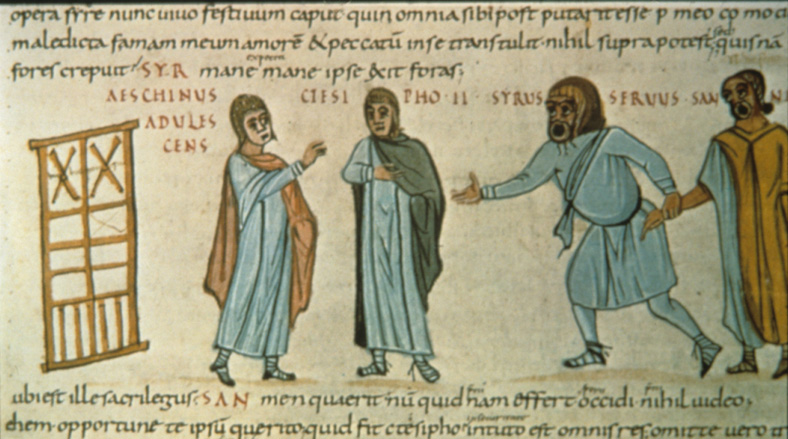 opera syre nunc vivo festivum caput qui n omnia sibi post putarit esse p meo comodo
maledicta famam meum amorē & peccatū in se transtulit · nihil supra potest · quis nā
fores crepuit · SYR mane mane ipse exit foras ;
AESCHINUS CTESIPHO · II · SYRUS SERUUS · SAN NI
ADULES
CENS
ubi est ille sacrilegus · SAN men querit nū quid nam effert occidi nihil video ,
ehem · opportune te ipsū querito · quid fit ctesipho · in tuto est omnis res · omitte vero tr